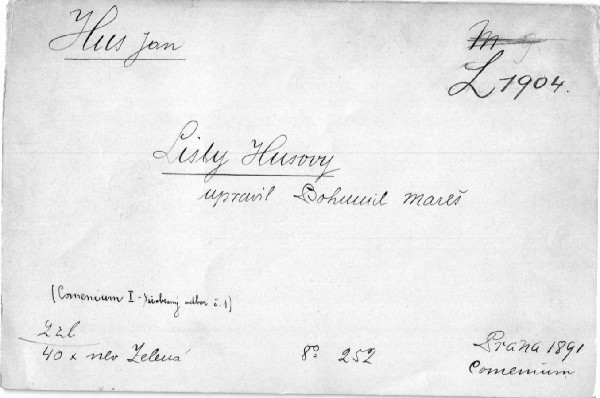 Hus Jan
M
L 1904.
Listy Husovy
upravil Bohumil Mareš
(Comenium I - odbor č. 1)
2 zl
40 x nev Zelená
8° 252
Praha 1891
Comenium